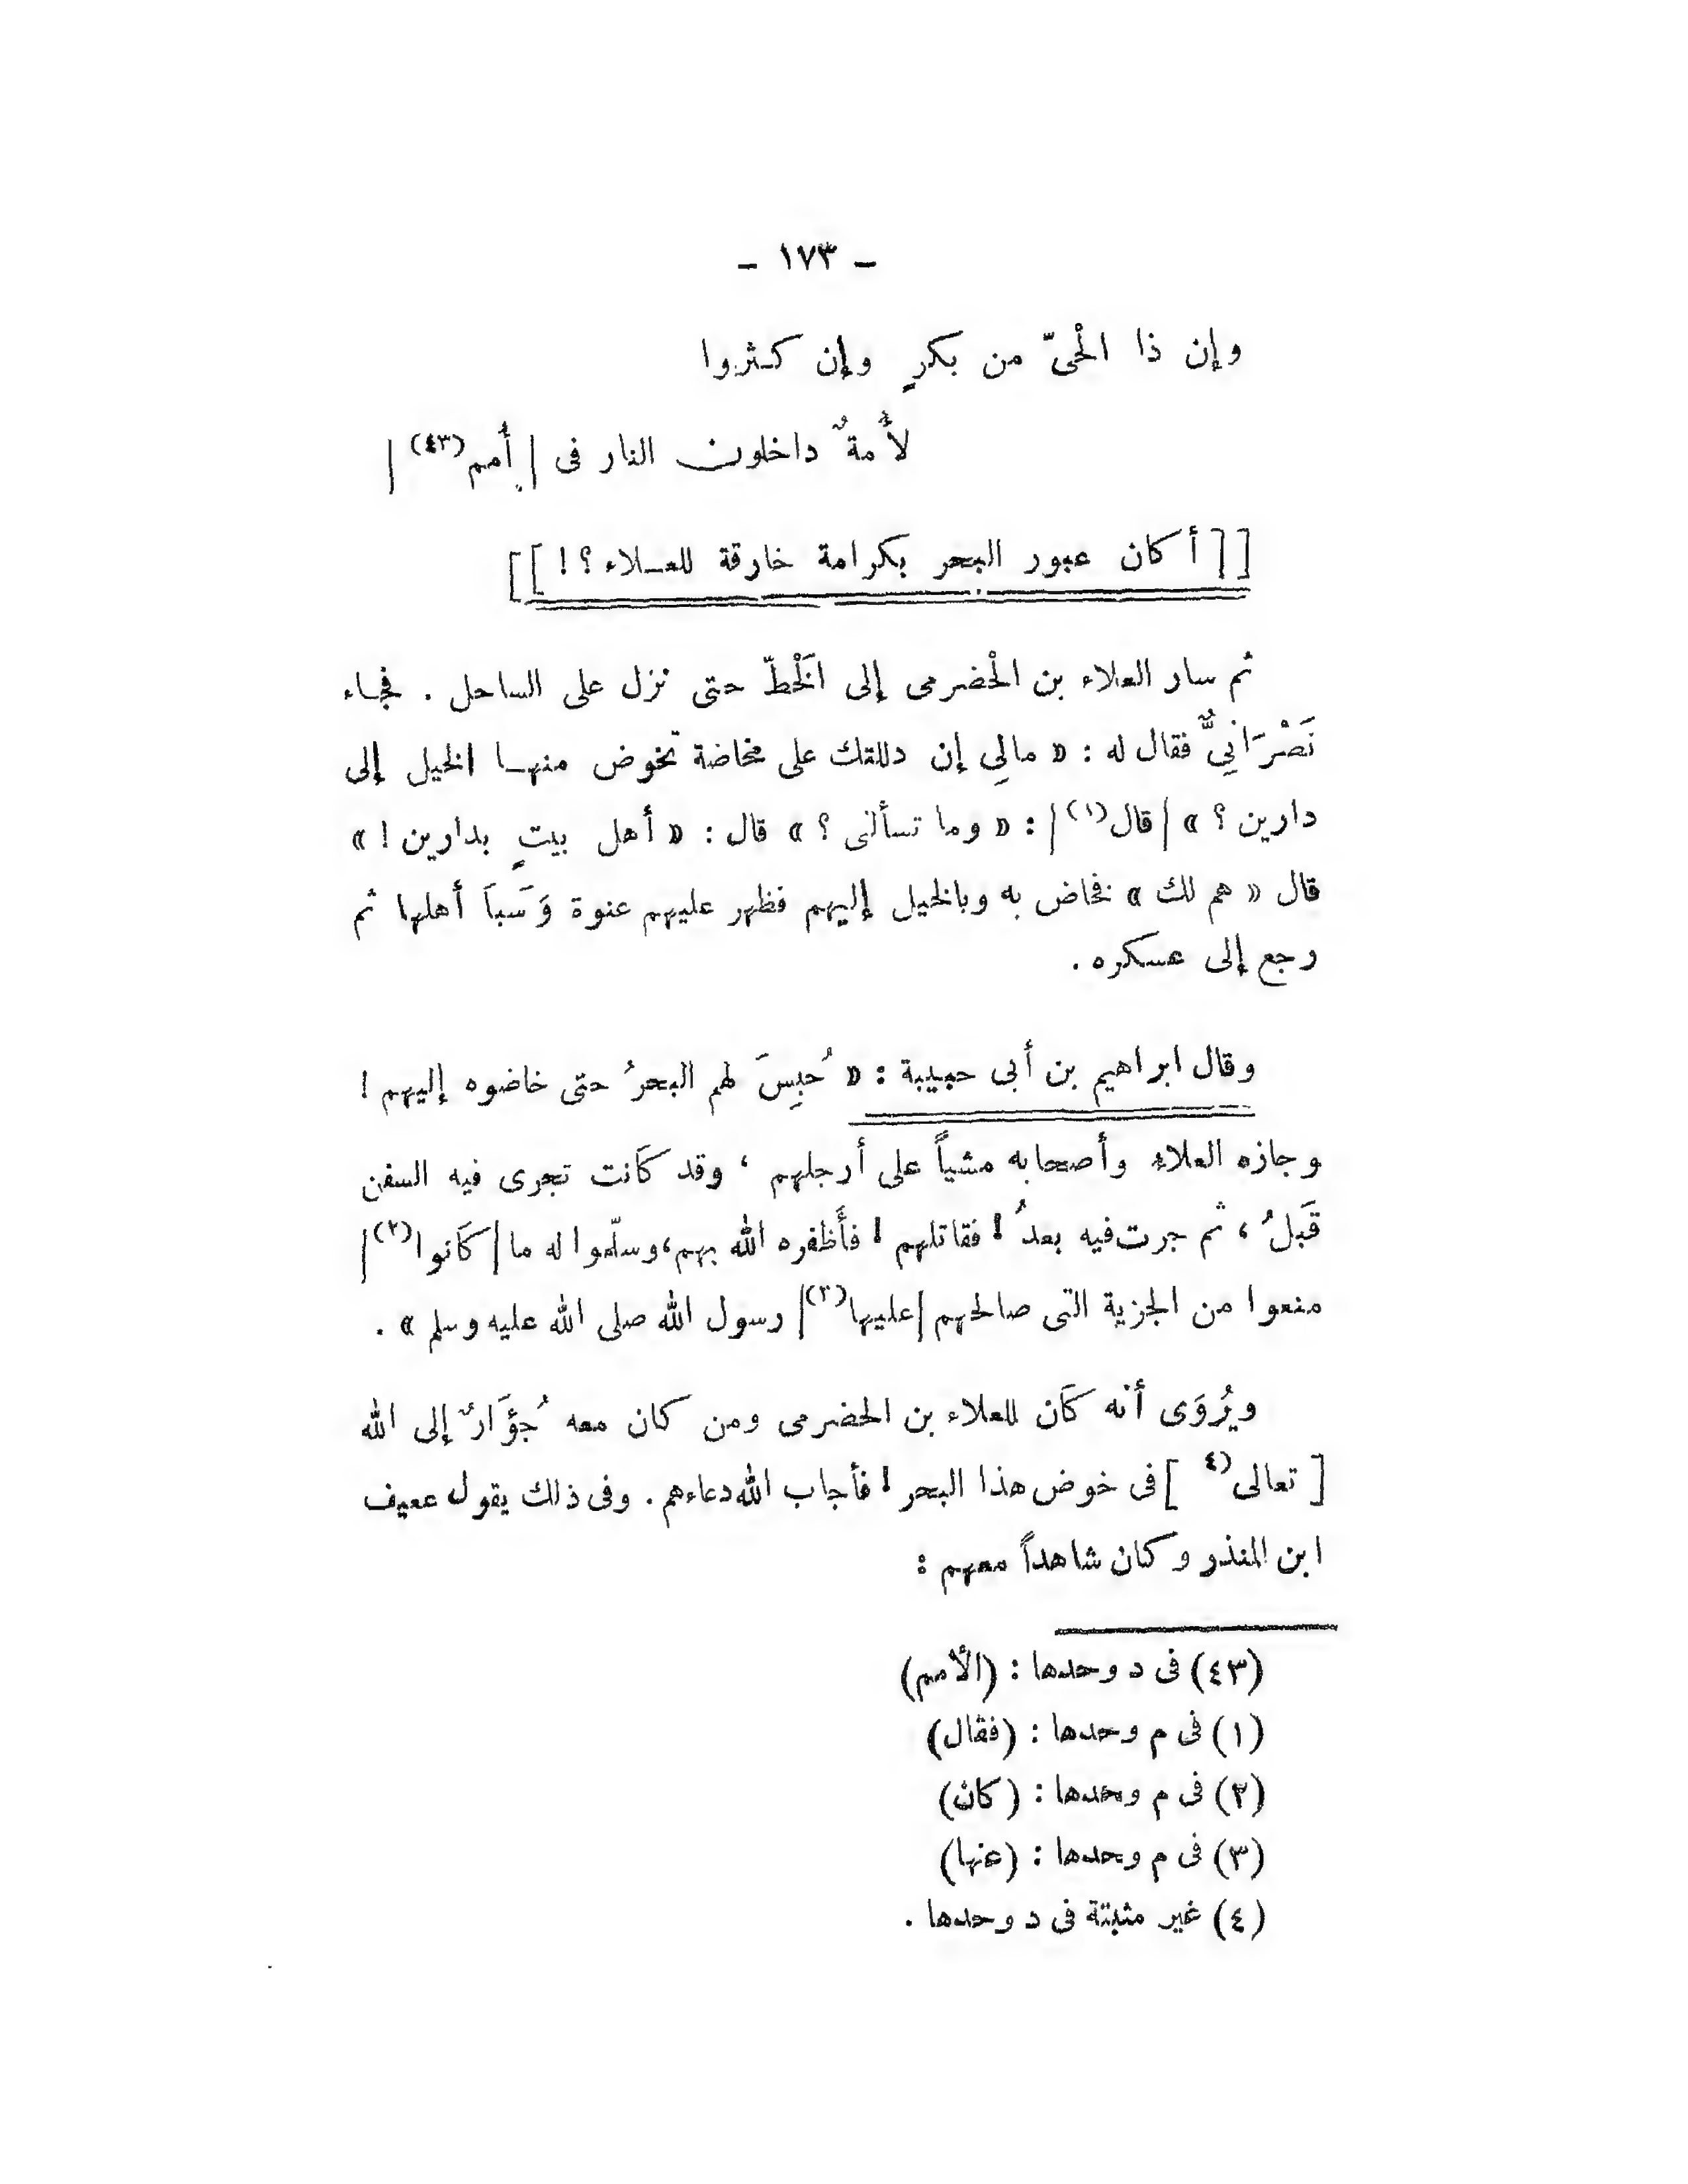 – ١٧٣ –
وإن ذا الْحىّ من بكرٍ وإن كثروا
لأُمةٌ داخلون النار فى |أُمم(٤٣)|
[[أكان عبور البحر بكرامة خارقة للعـلاء ؟ !]]
ثم سار العلاء بن الْحضرمى إلى الَخْطّ حتى نزل على الساحل . فجـاء
نَصْرَانِىٌّ فقال له : « مالِى إن دللتك على مخاضة تخوض منهـا الخيل إلى
دارين ؟ » |قال(١)| : « وما تسألنى ؟ » قال : « أهل بيتٍ بدارين ! »
قال « هم لك » فخاض به وبالخيل إليهم فظهر عليهم عنوة وَسَبَا أهلها ثم
رجع إلى عسكره .
وقال ابراهيم بن أبى حبيبة : « حُبِسَ لهم البحرُ حتى خاضوه إليهم !
وجازه العلاء وأصحابه مشياً على أرجلهم ، وقد كَانت تجرى فيه السفن
قَبلُ ، ثم جرت فيه بعدُ ! فقاتلهم ! فأَظفره الله بهم، وسلّموا له ما |كَانوا(٢)|
منعوا من الجزية التى صالحهم |عليها(٣)| رسول الله صلى الله عليه وسلم » .
ويُروَى أنه كَان للعلاء بن الحضرمى ومن كان معه جُؤَارٌ إلى الله
[ تعالى(٤ ] فى خوض هذا البحر ! فأجاب الله دعاءهم . وفى ذلك يقول عفيف
ابن المنذر وكان شاهداً معهم :
(٤٣) فى د وحدها : (الأمم)
(١) فى م وحدها : (فقال)
(٢) فى م وحدها : (كان)
(٣) فى م وحدها : (عنها)
(٤) غير مثبتة فى د وحدها .